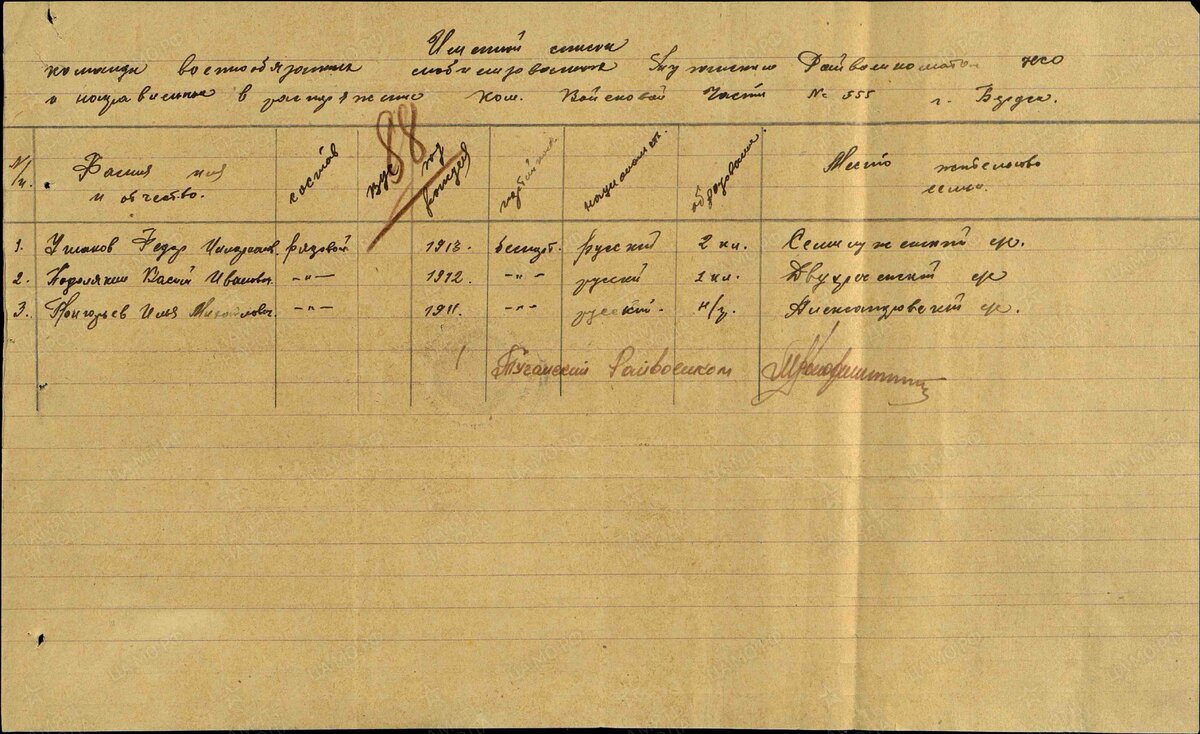 Именной список
команды военнообязанных мобилизованных Туганским Райвоенкоматом НСО
и направленные в распоряжение Ком. Войсковой Части № 555 г. Бердск.
88
№/п. Фамилия имя и отчество. состав ВУС год рождения партийность национальность. образование. Место жительство семьи.
1. Ушаков Федор рядовой 1913. беспарт. русский 2 кл. Семилуженский с/с.
2. Подолякин Васил Иванович —"— 1912. —"— русский 2 кл. Двухреченский с/с
3. Илья Михайлович. —"— 1911. —"— русский. н/г. Александровский с/с.
Туганский Райвоенком